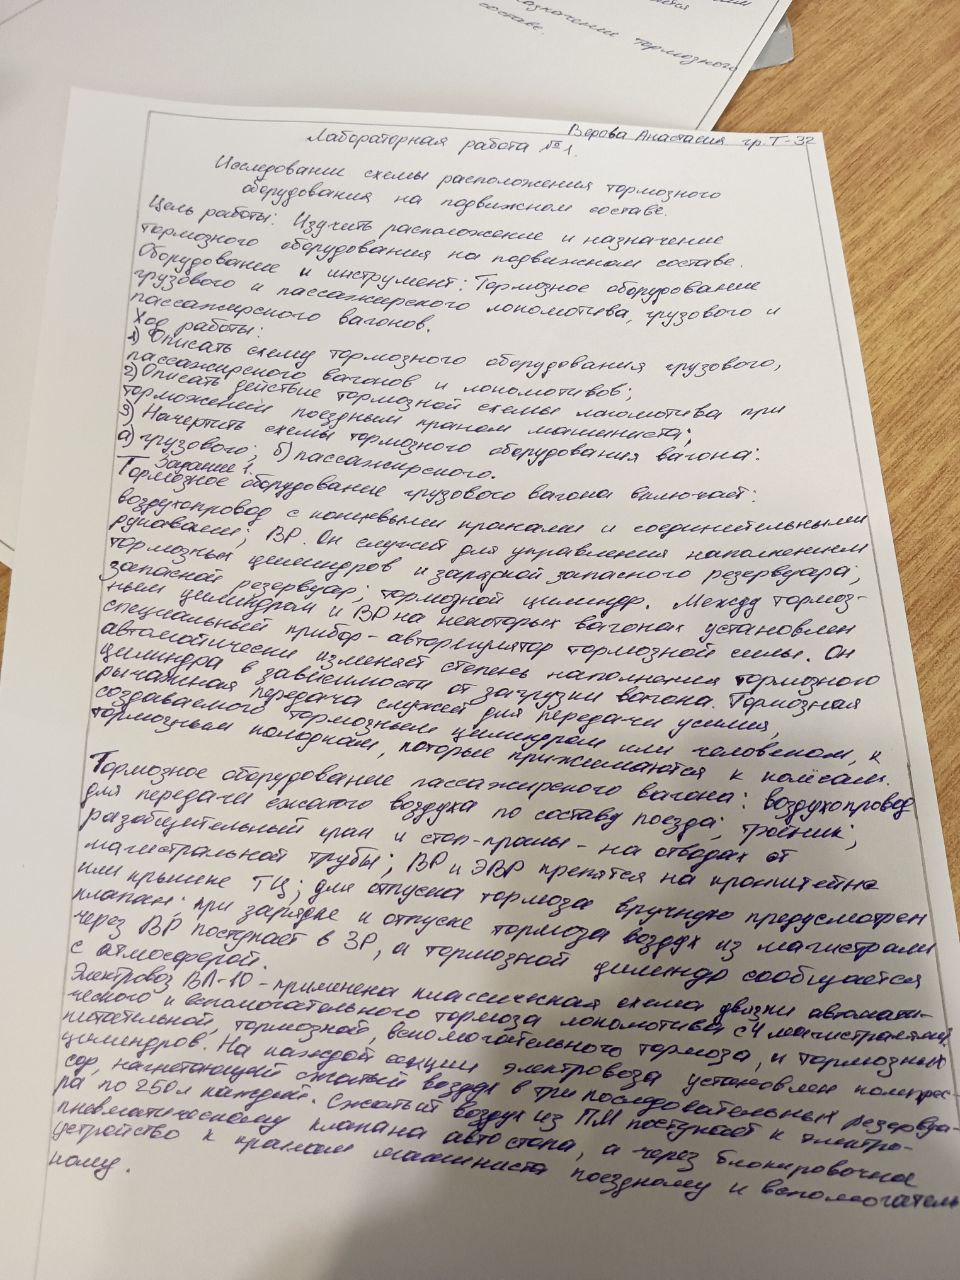 значении тормозного
составе.
Верова Анастасия гр. Т-32
Лабораторная работа №1.
Исследовании схемы расположения тормозного
оборудования на подвижном составе.
Цель работы: Изучить расположение и назначение
тормозного оборудования на подвижном составе.
Оборудование и инструмент: Тормозное оборудование
грузового и пассажирского локомотива, грузового и
пассажирского вагонов.
Ход работы:
1) Описать схему тормозного оборудования грузового,
пассажирского вагонов и локомотивов;
2) Описать действие тормозной схемы локомотива при
торможении поездным краном машиниста;
3) Начертить схемы тормозного оборудования вагона:
а) грузового; б) пассажирского.
Задание 1.
Тормозное оборудование грузового вагона включает:
воздухопровод с концевыми кранами и соединительными
рукавами; ВР. Он служит для управления наполнением
тормозных цилиндров и зарядкой запасного резервуара;
запасной резервуар; тормозной цилиндр. Между тормоз-
ным цилиндром и ВР на некоторых вагонах установлен
специальный прибор - авторегулятор тормозной силы. Он
автоматически изменяет степень наполнения тормозного
цилиндра в зависимости от загрузки вагона. Тормозная
рычажная передача служит для передачи усилия,
создаваемого тормозным цилиндром или человеком, к
тормозным колодкам, которые прижимаются к колёсам.
Тормозное оборудование пассажирского вагона: воздухопровод
для передачи сжатого воздуха по составу поезда; тройник;
разобщительный кран и стоп-краны - на отводах от
магистральной трубы; ВР и ЭВР крепятся на кронштейне
или крышке ТЦ; для отпуска тормоза вручную предусмотрен
клапан. При зарядке и отпуске тормоза воздух из магистрали
через ВР поступает в ЗР, а тормозной цилиндр сообщается
с атмосферой.
Электровоз ВЛ-10 - применена классическая схема связки автомати-
ческого и вспомогательного тормоза локомотива с 4 магистралями:
питательной, тормозной, вспомогательного тормоза, и тормозных
цилиндров. На каждой секции электровоза установлен компрес-
сор, нагнетающий сжатый воздух в три последовательных резервуа-
ра по 250л каждый. Сжатый воздух из ПМ поступает к электро-
пневматическому клапана автостопа, а через блокировочное
устройство к кранам машиниста поездному и вспомогатель
ному.